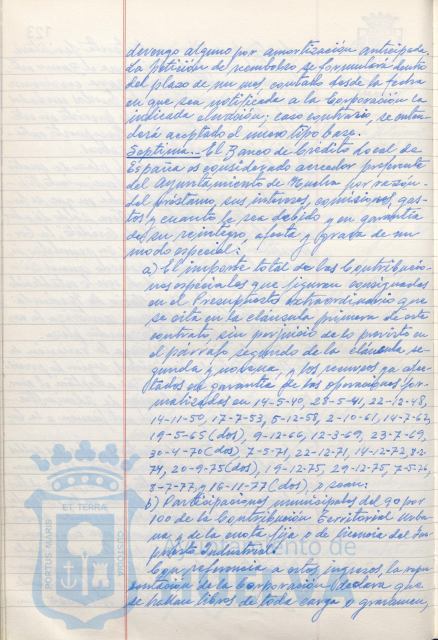 devengo alguno por amortización anticipada.
La petición de reembolso se formulará dentro
del plazo de un mes, contado desde la fecha
en que sea notificada a la Corporación la
indicada elevación; caso contrario, se enten
derá aceptado el nuevo tipo base.
Séptima.- El Banco de Crédito Local de
España es considerado acreedor preferente
del Ayuntamiento de Huelva por razón
del préstamo, sus intereses, comisiones, gas-
tos y cuanto le sea debido y en garantía
de su reintegro, afecta y grava de un
modo especial:
a) El importe total de las Contribucio-
nes especiales que figuran consignadas
en el Presupuesto extraordinario que
se cita en la cláusula primera de este
contrato, sin perjuicio de lo previsto en
el párrafo segundo de la cláusula se-
gunda y novena, y los recursos ya afec-
tados en garantía de las operaciones for-
malizadas en 14-5-40, 28-5-41, 22-12-48,
14-11-50, 17-7-53, 5-12-58, 2-10-61, 14-7-62,
19-5-65 (dos), 9-12-66, 12-3-69, 23-7-69,
30-4-70 (dos) 7-5-71, 22-12-71, 14-12-72, 8-2-
74, 20-9-75 (dos), 19-12-75, 29-12-75, 7-5-76,
8-7-77, y 16-11-77 (dos) o sean:
b) Participaciones municipales del 90 por
100 de la Contribución Territorial Urba
na, y de la cuota fija o de licencia del Im-
puesto Industrial.
Con referencia a estos ingresos, la repre
sentación de la Corporación declara que
se hallan libres de toda carga o gravamen,
PORTUS MARIS
ET TERRÆ
CUSTODIA